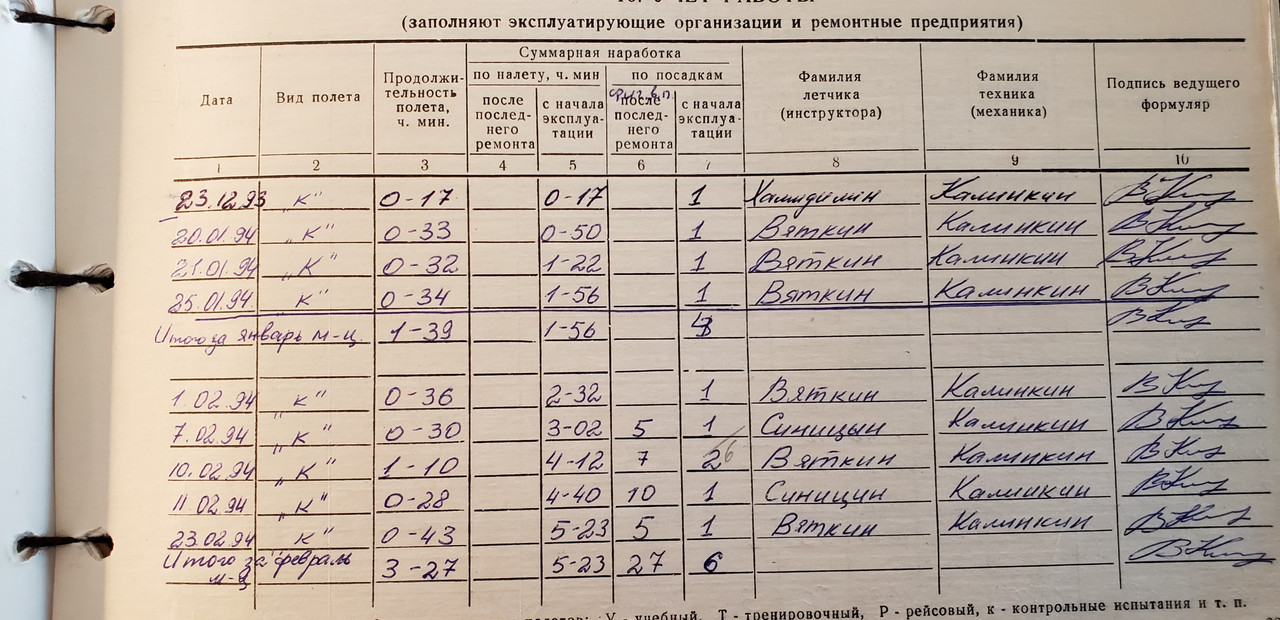 10. УЧЕТ РАБОТЫ
(заполняют эксплуатирующие организации и ремонтные предприятия)
Дата Вид полета Продолжи-тельность полета, ч. мин. Суммарная наработка Фамилия летчика (инструктора) Фамилия техника (механика) Подпись ведущего формуляр
по налету, ч. мин по посадкам
после послед-него ремонта с начала эксплуа-тации после послед-него ремонта с начала эксплуа-тации
1 2 3 4 5 6 7 8 9 10
23.12.93 „К" 0-17 0-17 1 Калинкин
20.01.94 „К" 0-33 0-50 1 Вяткин Калинкин
21.01.94 „К" 0-32 1-22 1 Вяткин Калинкин
25.01.94 „К" 0-34 1-56 1 Вяткин Калинкин
Итого за январь м-ц. 1-39 1-56
1.02.94 „К" 0-36 2-32 1 Вяткин Калинкин
7.02.94 „К" 0-30 3-02 5 1 Синицын Калинкин
10.02.94 „К" 1-10 4-12 7 2 Вяткин Калинкин
11.02.94 „К" 0-28 4-40 10 1 Синицин Калинкин
23.02.94 „К" 0-43 5-23 5 1 Вяткин Калинкин
Итого за февраль м-ц 3-27 5-23 27 6
У - учебный, Т - тренировочный, Р - рейсовый, к - контрольные испытания и т. п.